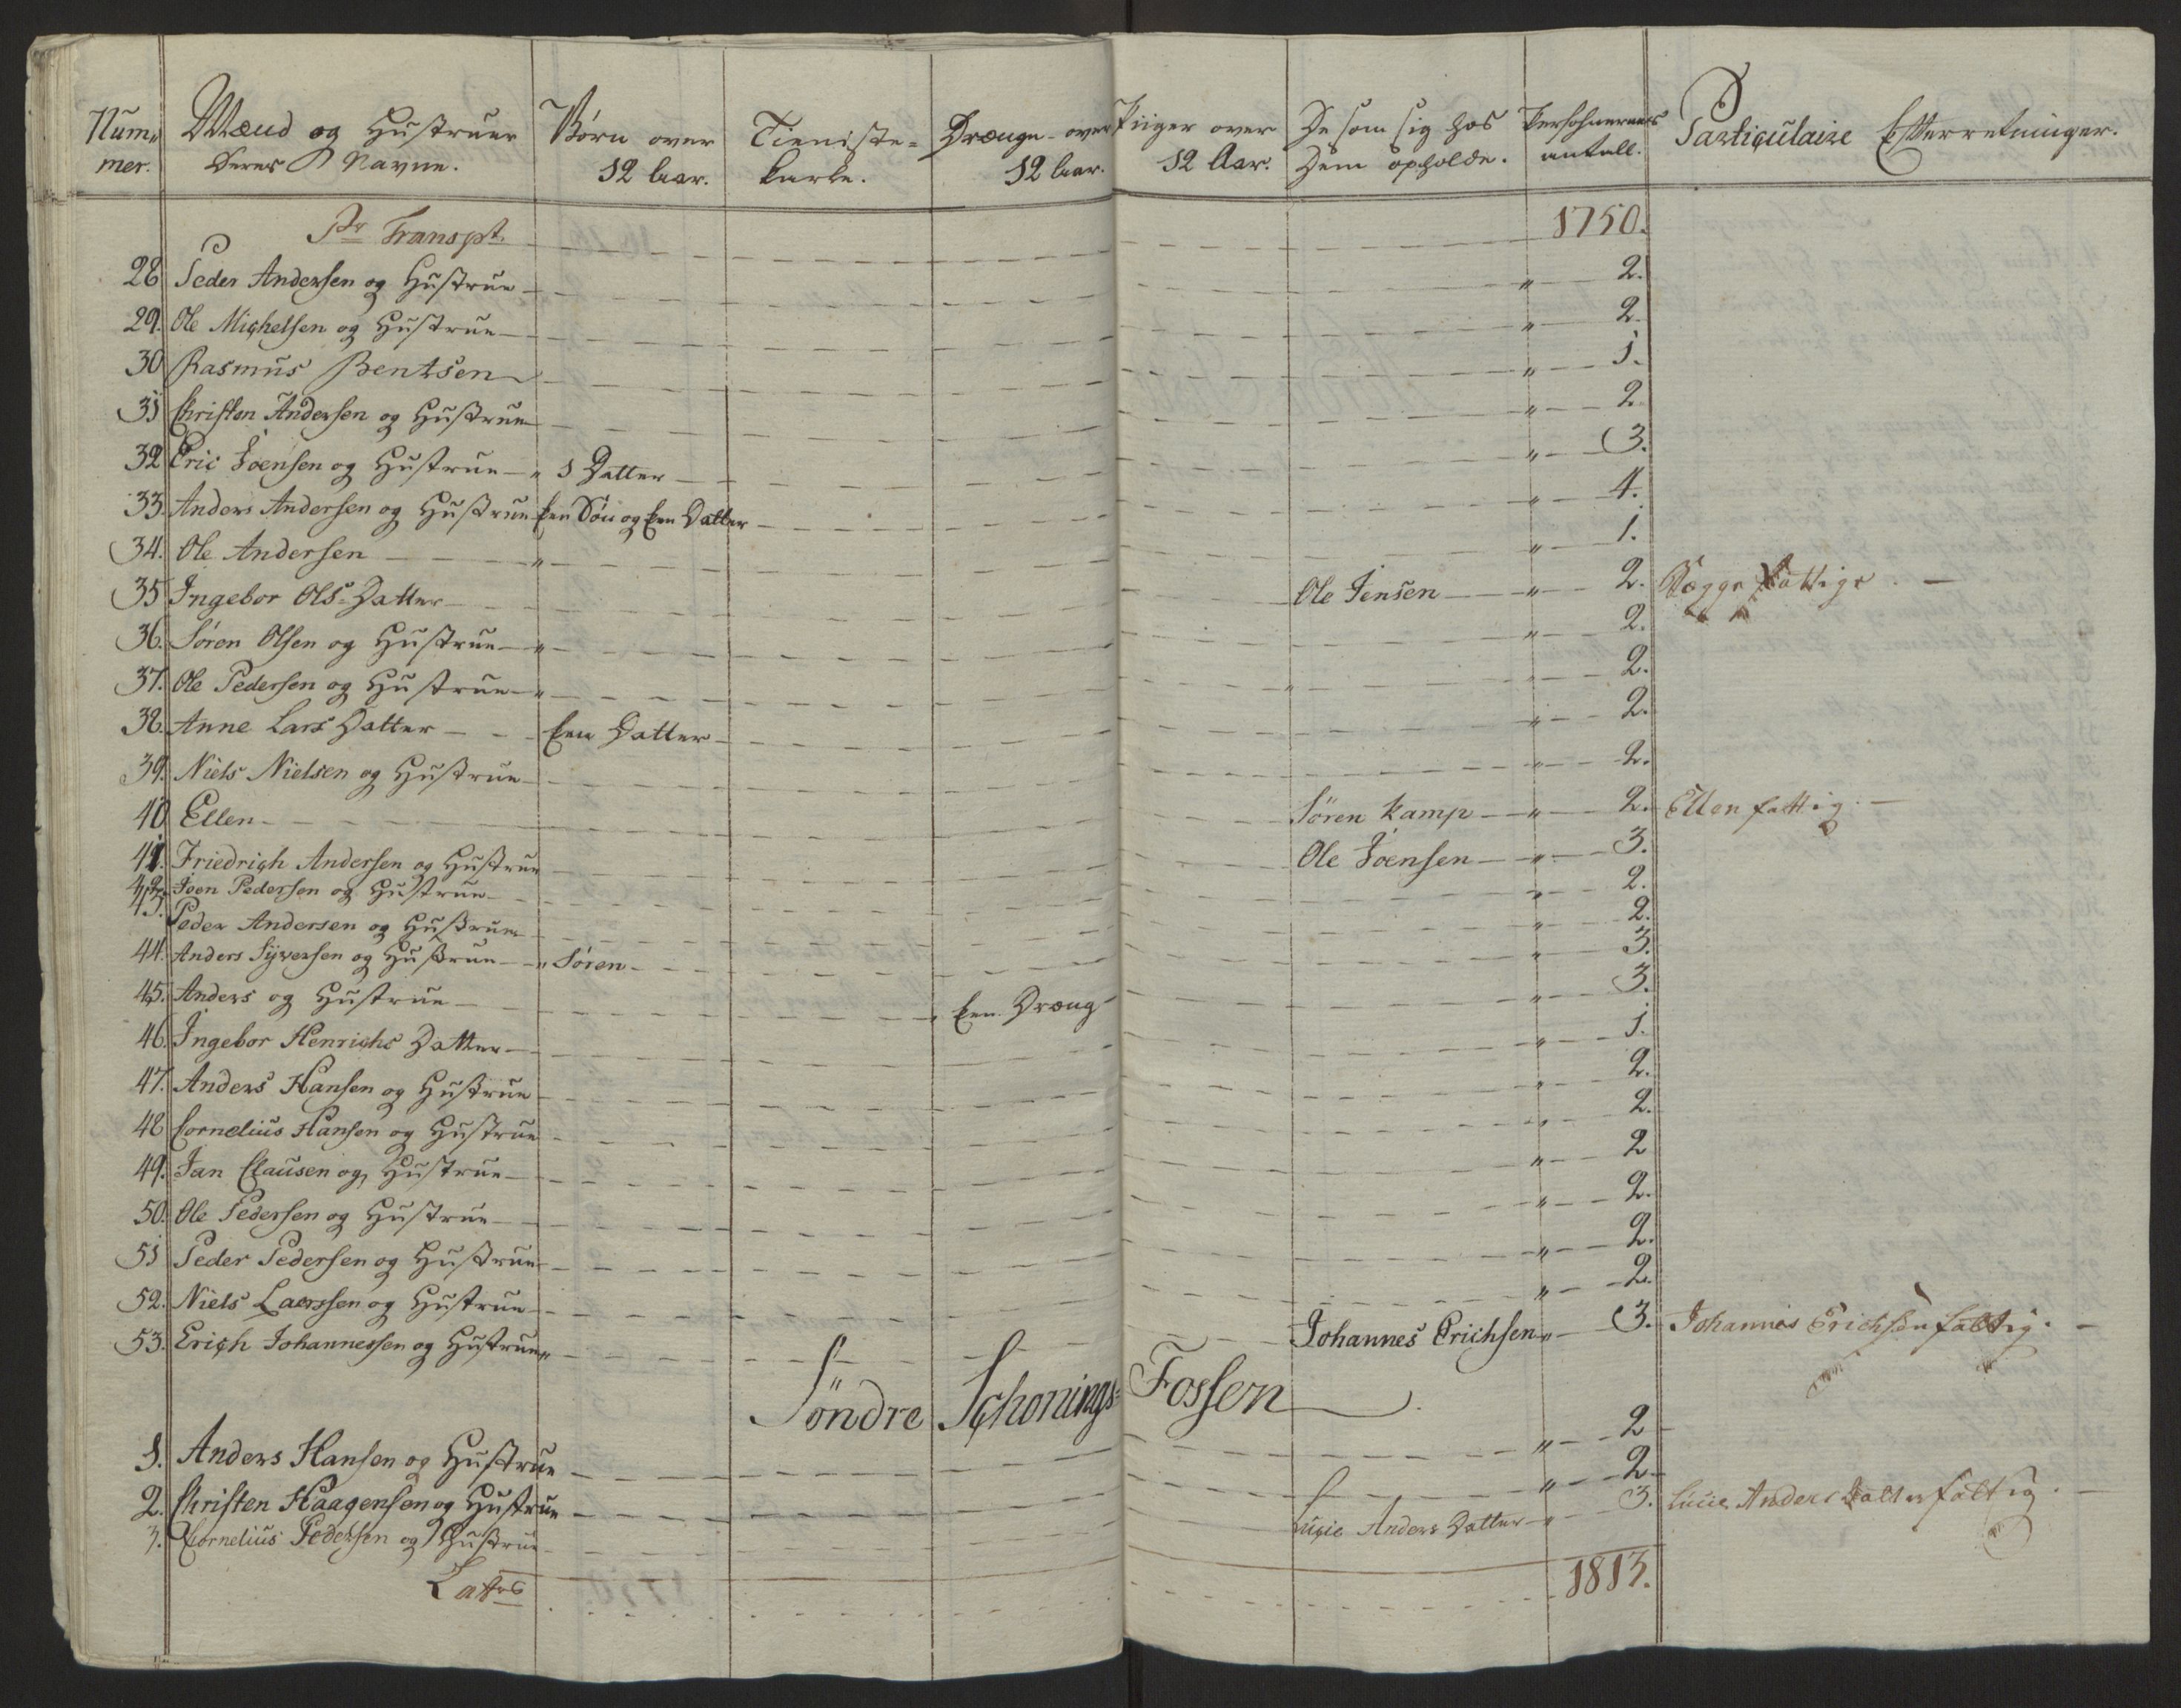 Num„ mer. | Mænd og Hustruer Deres Navne. | Børn over 12 Aar. | Tieniste= karle. | Drænge over 12 Aar. | Piiger over 12 Aar. | De som sig hos Dem opholde. | Persohnernes antall. | Particulaire Efterretninger.
Pr Transpt. 1750.
28 Peder Andersen og Hustrue „ 2.
29. Ole Michelsen og Hustrue „ 2.
30 Rasmus Bentsen „ 1.
31 Christen Andersen og Hustrue „ 2
32 Eric Joensen og Hustrue „ 1 Datter „ 3.
33. Anders Andersen og Hustrue Een Søn og Een Datter „ 4.
34. Ole Andersen „ „ 1.
35 Ingebor Ols=Datter Ole Jensen „ 2. Begge fattige.
36. Søren Olsen og Hustrue „ „ 2.
37. Ole Pedersen og Hustrue „ „ 2.
38. Anne Lars Datter Een Datter „ 2.
39. Niels Nielsen og Hustrue „ 2.
40 Ellen Søren Kamp „ 2. Ellen fattig.
41. Friedrich Andersen og Hustrue Ole Joensen „ 3.
42. Joen Pedersen og Hustrue „ 2.
43. Peder Andersen og Hustrue „ 2.
44. Anders Syversen og Hustrue „ Søren „ 3.
45. Anders og Hustrue „ Een Dræng „ 3.
46. Ingebor Henrichs Datter „ 1.
47. Anders Hansen og Hustrue „ 2.
48 Cornelius Hansen og Hustrue „ 2.
49. Jan Clausen og Hustrue „ 2
50. Ole Pedersen og Hustrue „ 2.
51 Peder Pedersen og Hustrue „ 2.
52. Niels Laerssen og Hustrue „ 2.
53. Erich Johannessen og Hustrue „ Johannes Erichsen „ 3. Johannes Erichsen fattig.
Söndre Schonings=Fossen
1. Anders Hansen og Hustrue „ 2
2. Christen Haagensen og Hustrue „ 2
3. Cornelius Pedersen og Hustrue Lucie Anders Datter „ 3. Lucie Anders Datter fattig.
Latus 1813.